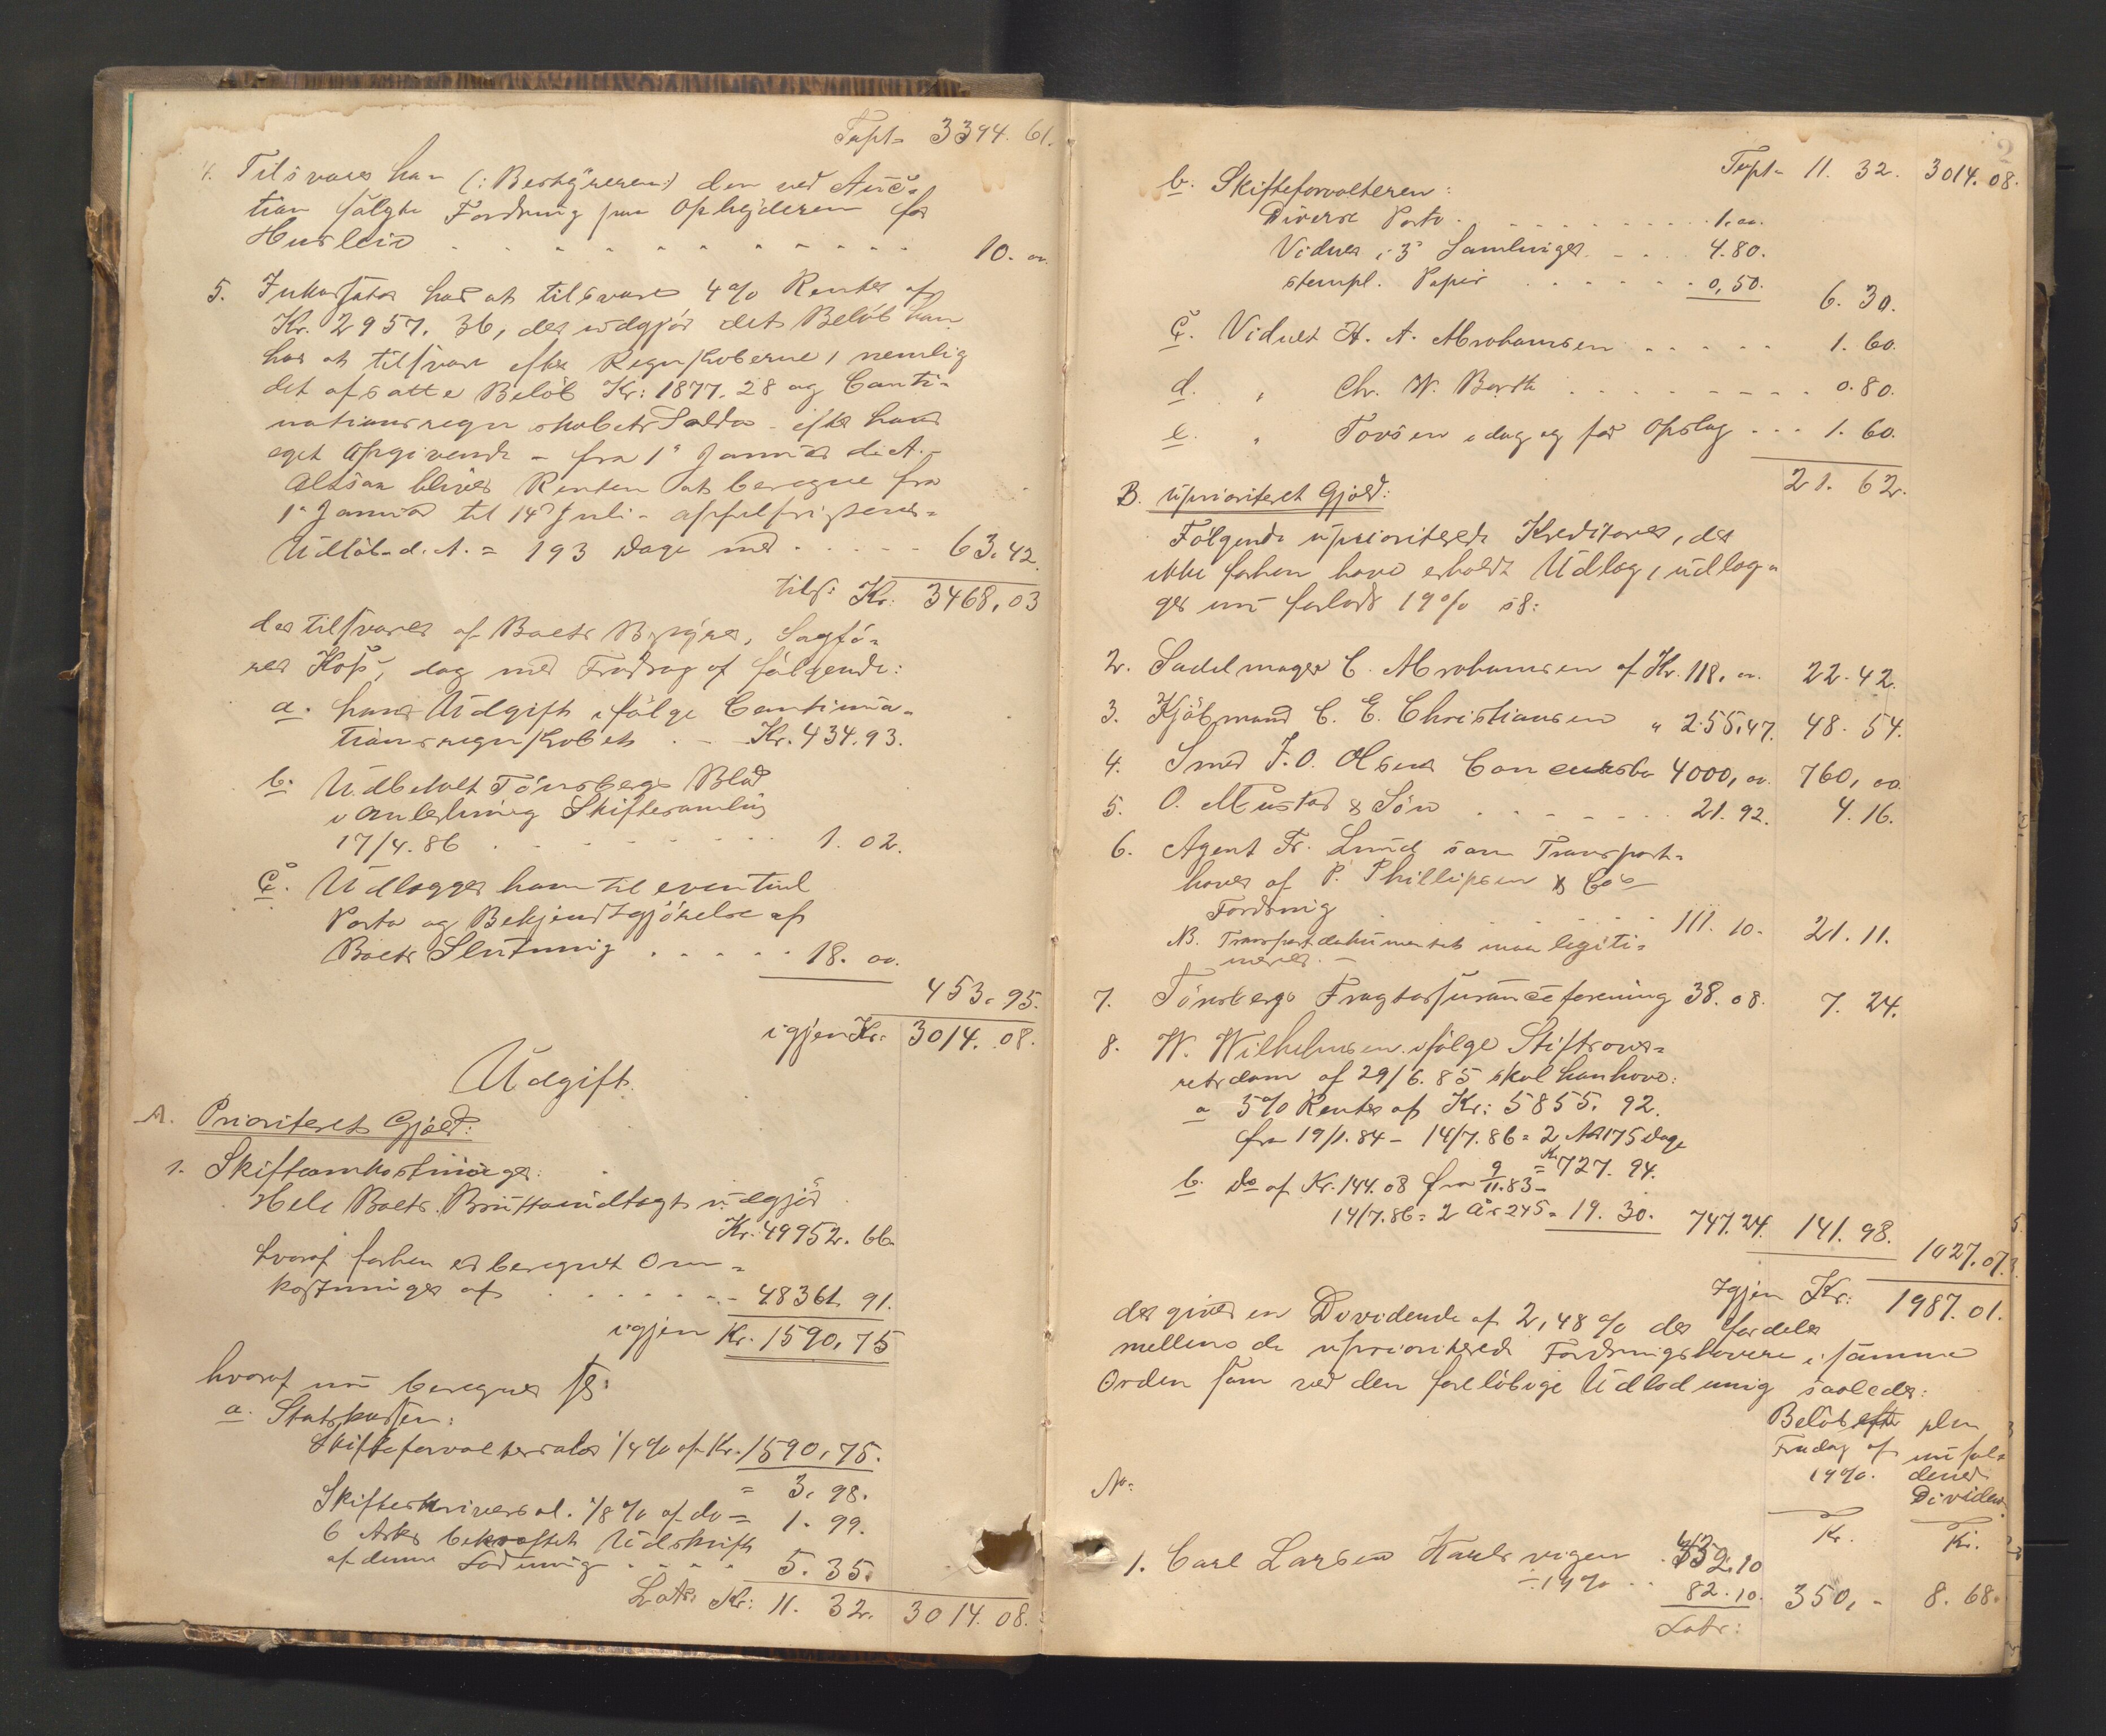 Trspt. 3394. 61.
4. Tilsvares han (: Bestyreren:) den ved Auc-
tion solgte Fordring paa Opbyderen for
Husleie . . . . . . . . . 10. oo.
5. Inkassator har at tilsvare 4% Renter af
Kr. 2957. 36, der udgjør det Beløb han
har at tilsvare efter Regnskaberne, nemlig
det afsatte Beløb Kr: 1877. 28 og Conti-
nationsregnskabets Saldo - efter hans
eget Opgivende - fra 1' Januar d. A. -
Altsaa bliver Renten at beregne fra
1' Januar til 14' Juli - appelfristens
Udløb d. A. = 193 Dage med . . . . . 63. 42.
tils: Kr: 3468, 03
der tilsvares af Boets Bestyrer, Sagfø-
rer Koss, dog med Fradrag af følgende:
a. hans Udgift ifølge Continua-
tionsregnskabet . - Kr. 434. 93.
b. Udbetalt Tønsbergs Blad
i Anledning Skiftesamling
17/4. 86 . . . . . . . 1. 02.
c. Udlægges ham til eventuel
Porto og Bekjendtgjørelse af
Boets Slutning . . . . . 18. oo.
453. 95.
igjen Kr: 3014. 08.
Udgift.
A. Prioriteret Gjæld:
1. Skifteomkostninger:
Hele Boets Bruttoindtægt udgjør
Kr. 49952. 66.
hvoraf forhen er beregnet Om-
kostninger af . . . . . . - 48361. 91.
igjen Kr. 1590, 75
hvoraf nu beregnes sig:
a. Statskassen:
Skifteforvaltersalær 1/4 % af Kr. 1590, 75.
= 3. 98.
Skifteskriversal. 1/8 % af do = 1. 99.
6 Arks bekræftet Udskrift
af denne Lodning . . . . 5. 35.
Lats: Kr: 11. 32. 3014. 08.
2
Trspt. 11. 32. 3014. 08.
b. Skifteforvalteren:
Diverse Porto . . . . . . . . 1. oo.
Vidner i 3 Samlinger . - . . 4. 80.
stempl. Papir . . . . . . . 0, 50. 6. 30.
c. Vidnet H. A. Abrahamsen . . . . . 1. 60.
d. " Chr. W. Barth . . . . . . . . 0. 80.
e. " Tovsen idag og før Opslag . . . 1. 60.
21. 62.
B. Uprioriteret Gjæld:
Følgende uprioriterede Kreditorer, der
ikke forhen have erholdt Udlæg, udlæg-
ges nu forlods 19% s8:
2. Sadelmager C. Abrahamsen af Kr. 118, oo. 22. 42.
3. Kjøbmand C. E. Christiansen " 255, 47. 48. 54.
4. Smed J. O. Olsens Concursbo 4000, oo. 760, oo
5. O. Mustad & Søn . . . . . . . 21. 92. 4. 16.
6. Agent Fr. Lund som Transport-
haver af P. Phillipsen & Co's
Fordring . . . . . . . . 111. 10. 21. 11.
NB. Transportdokumentet maa legiti-
meres. -
7. Tønsbergs Fragtassuranceforening 38. 08. 7. 24.
8. W. Wilhelmsen ifølge Stiftsover-
retsdom af 29/6. 85 skal han have:
a 5% Renter af Kr: 5855. 92.
fra 19/1. 84 - 14/7. 86 = 2 Aar 175 Dage
= Kr 727. 94.
b. Do af Kr. 144. 08 fra 9/11. 83 -
14/7. 86 = 2 År 245 = 19. 30. 747. 24. 141. 98. 1027. 07.
Igjen Kr: 1987. 01.
der giver en Dividende af 2, 48 % der fordeles
mellem de uprioriterede Fordringshavere i samme
Orden som ved den foreløbige Udlodning saaledes:
No. Beløb efter den
Fradag af nu fal-
19%. dende
Dividen
Kr. Kr.
1. Carl Larsen Karlsvigen . 432. 10
÷ 19% . . 82. 10. 350, - 8. 68.
Lats: